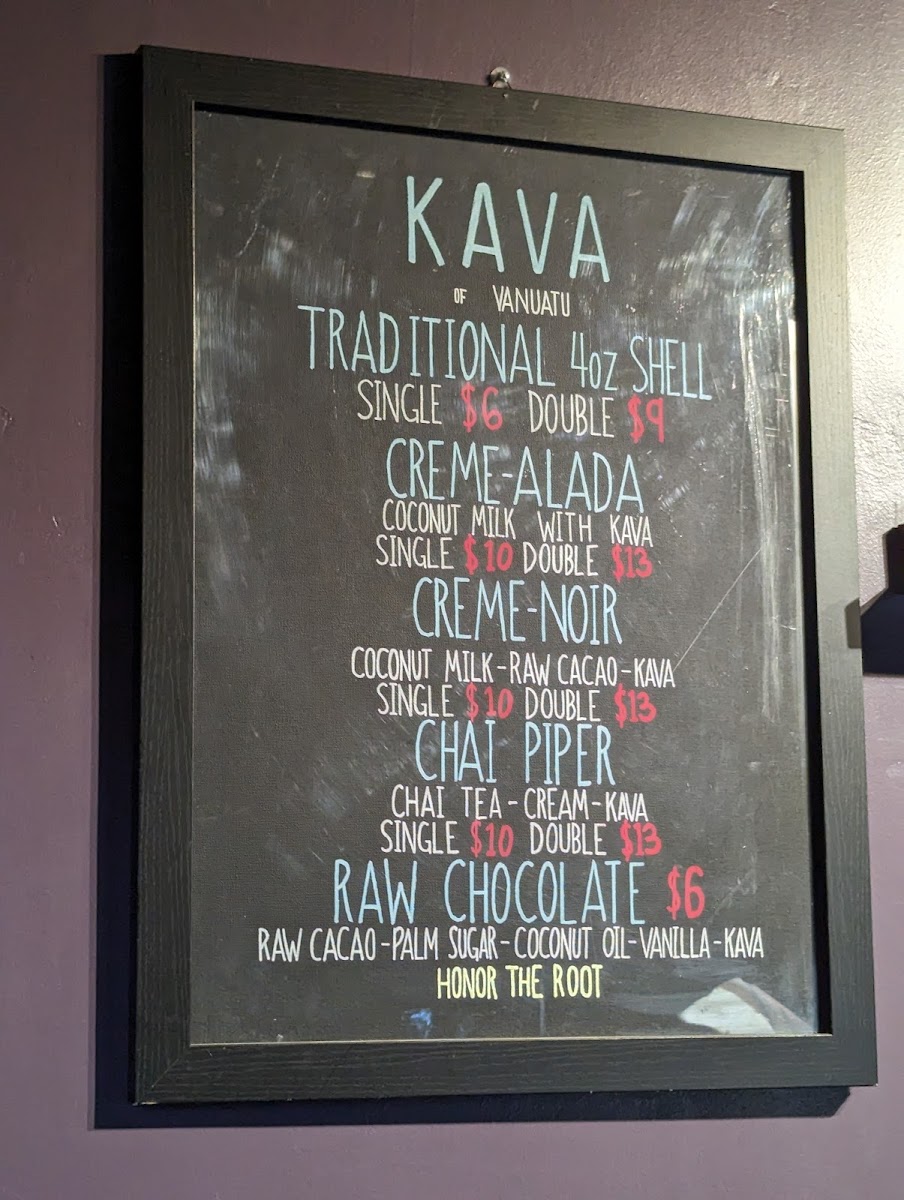 KAVA
OF VANUATU
TRADITIONAL 4oz SHELL
SINGLE $6 DOUBLE $9
CREME-ALADA
COCONUT MILK WITH KAVA
SINGLE $10 DOUBLE $13
CREME-NOIR
COCONUT MILK-RAW CACAO-KAVA
SINGLE $10 DOUBLE $13
CHAI PIPER
CHAI TEA-CREAM-KAVA
SINGLE $10 DOUBLE $13
RAW CHOCOLATE $6
RAW CACAO-PALM SUGAR-COCONUT OIL-VANILLA-KAVA
HONOR THE ROOT